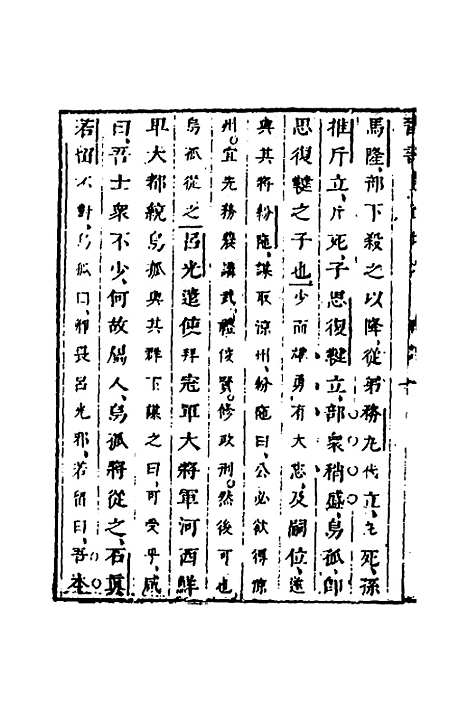 馬隆部下殺之以降、從弟務丸代立、死、孫
推斤立、斤死、子思復鞬立、部衆稍盛、烏孤、即
思復鞬之子也、少而雄勇、有大志、及嗣位、遂
與其將紛陁、謀取涼州、紛陁曰、公必欲得涼
州。宜先務農講武、禮俊賢。修政刑。然後可也
烏孤從之呂光遣使拜冠軍大將軍河西鮮
卑大都統烏孤與其群下謀之曰、可受乎、咸
曰、吾士衆不少、何故屬人、烏孤將從之、石真
若留不對、烏孤曰、卿畏呂光邪、若留曰、吾本